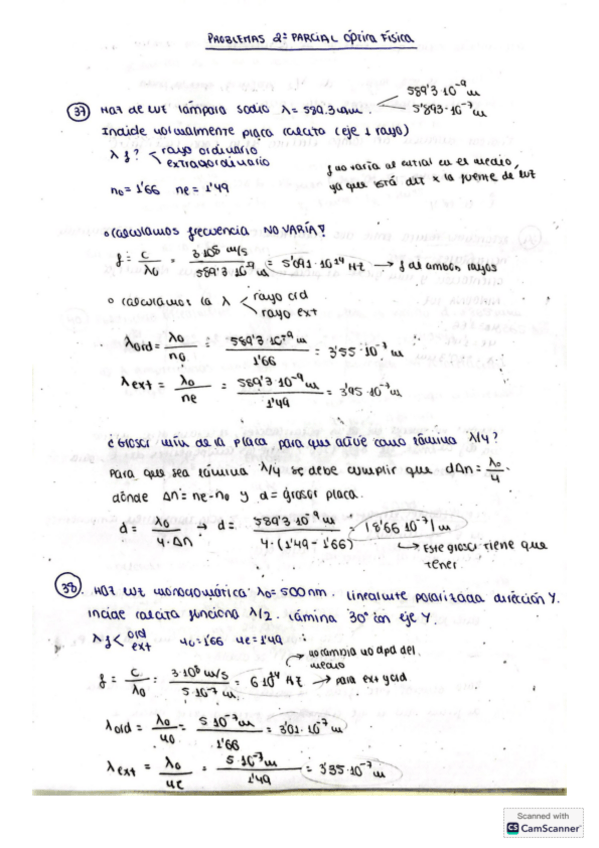 PROBLEMAS 2º PARCIAL óptica Física
37 Haz de luz lámpara sodio λ = 589.3 nm. 589'3·10⁻⁹ m
5'893·10⁻⁷ m
Incide normalmente placa calcita (eje ⊥ rayo)
λ f? rayo ordinario
extraordinario
f no varía al entrar en el medio,
ya que está det x la fuente de luz
no = 1'66 ne = 1'49
○ calculamos frecuencia NO VARÍA!
f = c/λo = 3·10⁸ m/s / 589'3·10⁻⁹ m = 5'091·10¹⁴ Hz → f de ambos rayos
○ calculamos la λ rayo ord
rayo ext
λord = λo/no = 589'3·10⁻⁹ m / 1'66 = 3'55·10⁻⁷ m
λext = λo/ne = 589'3·10⁻⁹ m / 1'49 = 3'95·10⁻⁷ m
¿Grosor mín de la placa para que actúe como lámina λ/4?
Para que sea lámina λ/4 se debe cumplir que dΔn = λo/4.
dónde Δn = ne-no y d = grosor placa.
d = λo/4·Δn → d = 589'3·10⁻⁹ m / 4·(1'49 - 1'66) = |8'66·10⁻⁷| m
→ Este grosor tiene que
tener.
38. Haz luz monocromática λo = 500 nm. linealmente polarizada dirección Y.
incide calcita funciona λ/2. Lámina 30º con eje Y.
λ f ord
ext no = 1'66 ne = 1'49
no cambia no dpd del
medio
f = c/λo = 3·10⁸ m/s / 5·10⁻⁷ m = 6·10¹⁴ Hz → para ext y ord
λord = λo/no = 5·10⁻⁷ m / 1'66 = 3'01·10⁻⁷ m
λext = λo/ne = 5·10⁻⁷ m / 1'49 = 3'35·10⁻⁷ m
Scanned with
CS CamScanner